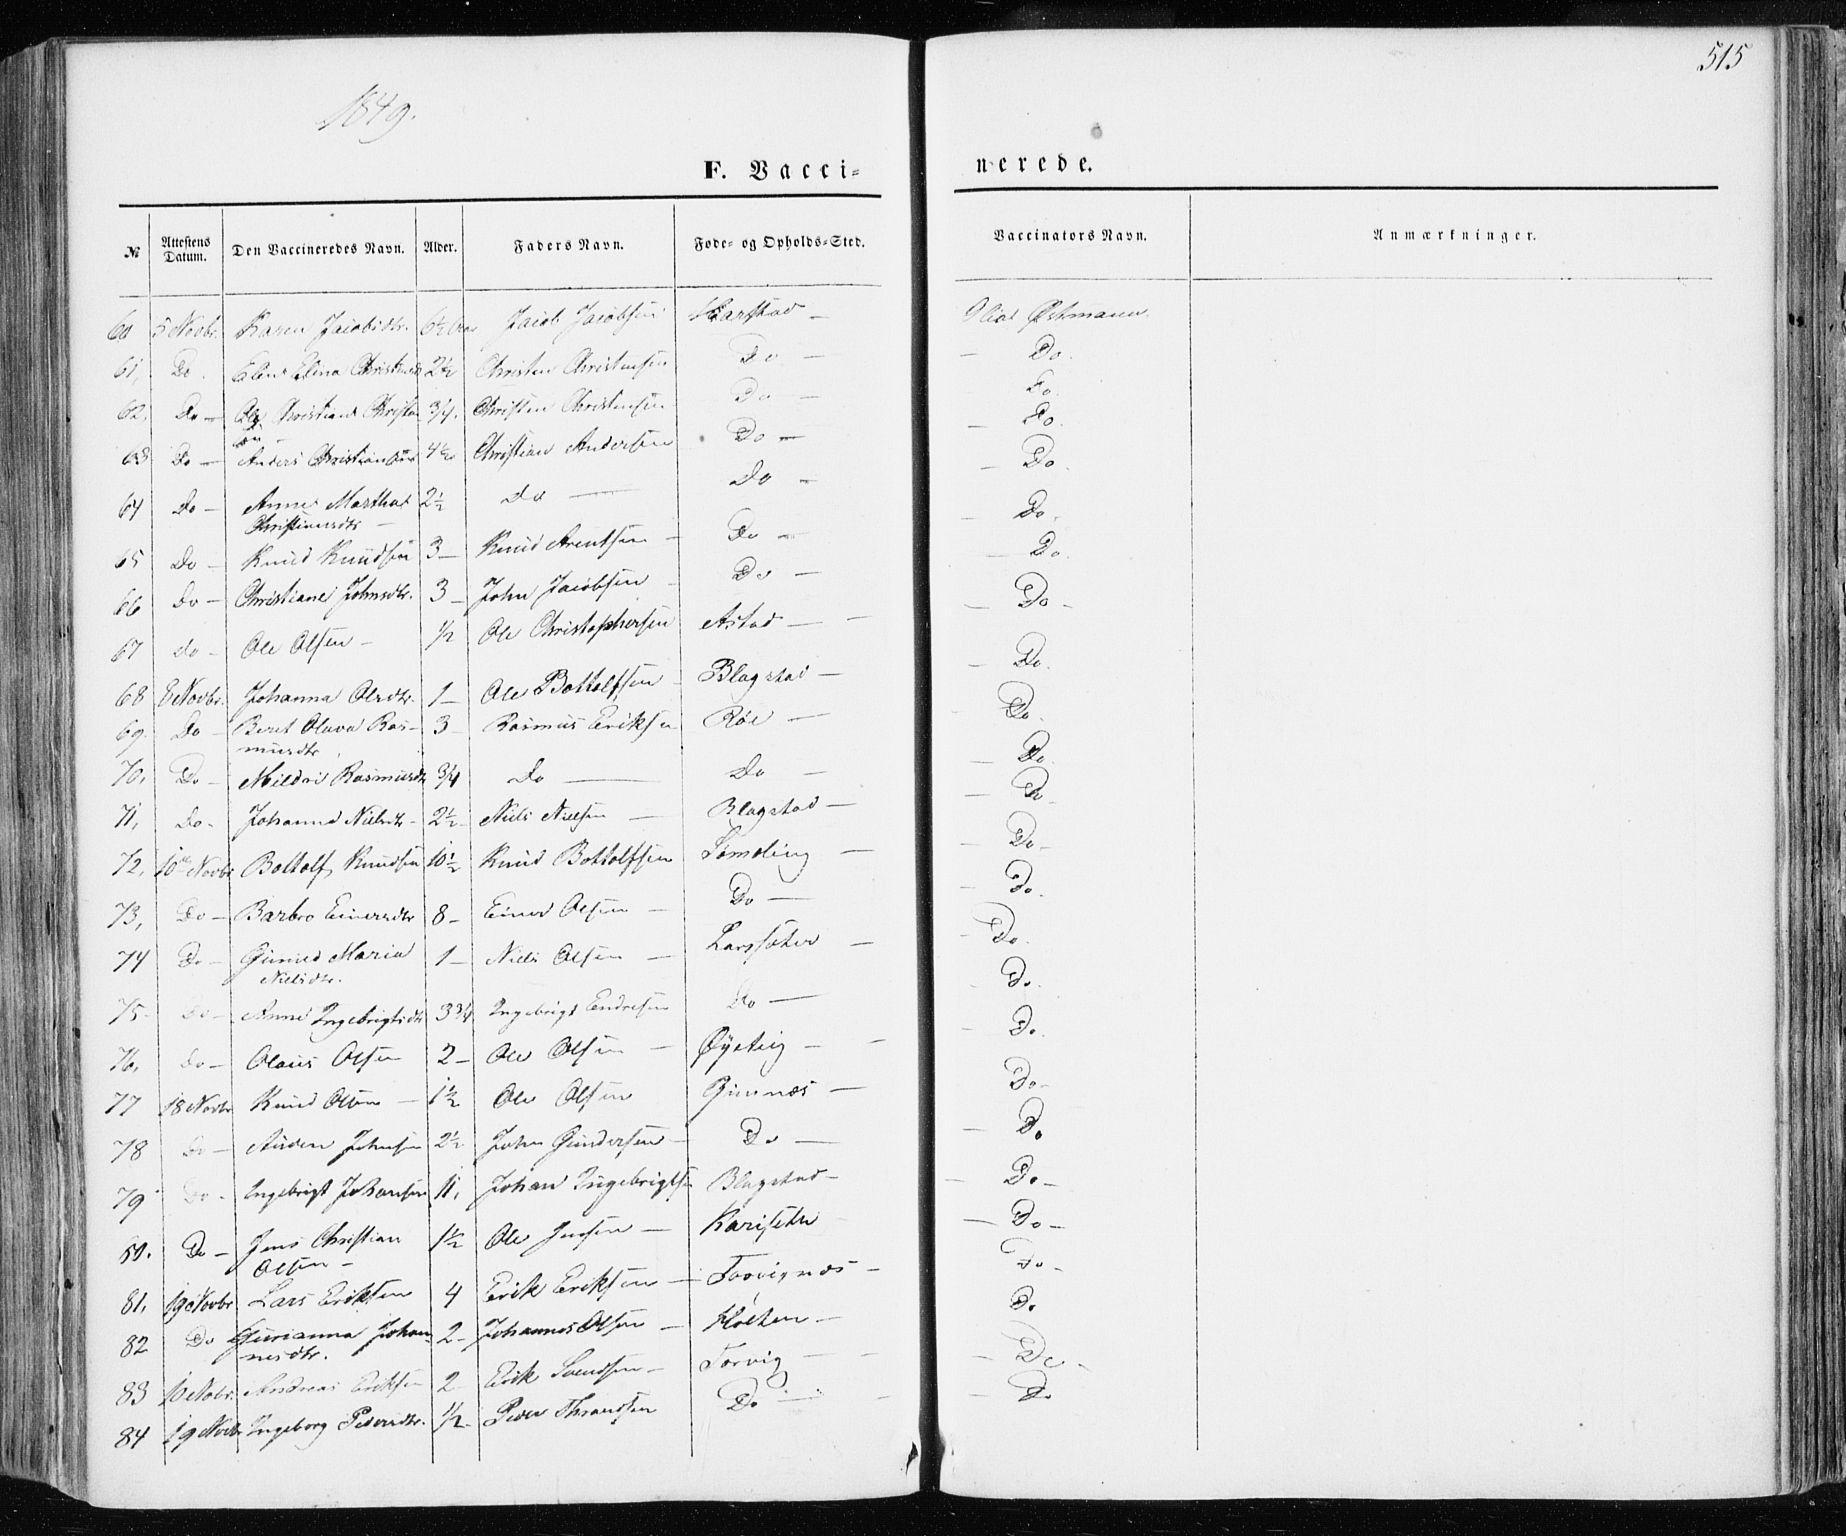 515
1849.
F. Vacci= nerede.
№ Attestens Datum. Den Vaccineredes Navn. Alder. Faders Navn. Føde= og Opholds=Sted. Vaccinators Navn. Anmærkninger.
60 5 Novbr. Karen Jacobsdtr. 6½ Jacob Jacobsen Harstad — Østmann.
61, Do. Elina 2½ Christen Christensen Do — — Do.
62, Do — Ole ¾. Christen Christensen Do — Do.
63 Do — Anders Christiansen 4½ Christian Andersen Do — Do.
64 Do — Anne Martha 2½ Do — Do — — Do.
Christiansdtr —
65 Do — Knud Knudsen 3 — Knud Arentsen — Do — — Do.
66 Do — Christiane Johnsdtr. 3 — John Jacobsen — Do — — Do.
67 do — Ole Olsen — ½ Ole Christophersen Astad — — Do —
68 Novbr. Johanna Olsdtr. 1 — Ole Bottolfsen — Blagstad — — Do.
69. Do — Beret Olava Ras- 3 — Rasmus Eriksen Röe — — Do.
musdtr.
70, Do — Mildri Rasmusdtr ¾ Do — Do — — Do.
71, Do — Johanna Nielsdtr — 2½ — Niels Nielsen — Blagstad — — Do.
72, 10de Novbr Bottolf Knudsen 10½ Knud Bottolfsen — — Do —
73, Do — Barbro Einersdtr 8 — Einer Olsen — Do — — Do.
74 Do — Maria 1 — Niels Olsen — Larssæter — — Do.
Nielsdtr.
75 Do — Anne Ingebrigtsdtr 3¾ Ingebrigt Endresen Do — Do.
76, Do — Olaus Olsen 2 — Ole Olsen — — — Do.
77 18 Novbr Knud Olsen — 1½ Ole Olsen Gimnæs — Do —
78 Do — Auden Johnsen 2½ John Gundersen — Do — — Do
79 Do — Ingebrigt Johansen 11, Johan Ingebrigtsen Blagstad — — Do —
80. Do — Jens Christian 1½ Ole Jensen — Karisæter — Do —
Olsen —
81, 19 Novbr Lars Eriksen 4 Erik Eriksen — Torvignæs — Do —
82 Do Gurianna Johan- 2 — Johannes Olsen — Holten — Do
nesdtr.
83 Novbr. Andreas Eriksen 2 Erik Svendsen — Torvig — — Do —
84 19 Novbr Ingeborg Pedersdtr. ½ — Peder Thrandsen Do — — Do